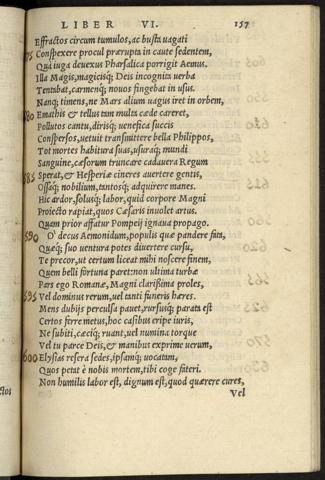 LIBER VI. 157
Effractos circum tumulos, ac busta uagati
Conspexere procul prærupta in caute sedentem,
Qua iuga deuexus Pharsalica porrigit Aemus.
Illa Magis, magicisq; Deis incognita uerba
Tentabat, carmenq; nouos fingebat in usus.
Nanq; timens, ne Mars alium uagus iret in orbem,
580 Emathis & tellus tam multa cæde careret,
Pollutos cantu, dirisq; uenefica succis
Conspersos, uetuit transmittere bella Philippos,
Tot mortes habitura suas, usuraq; mundi
Sanguine, cæsorum truncare cadauera Regum
585 Sperat, & Hesperiæ cineres auertere gentis,
Ossaq; nobilium, tantosq; adquirere manes.
Hic ardor, solusq; labor, quid corpore Magni
Proiecto rapiat, quos Cæsaris inuolet artus.
Quam prior affatur Pompeij ignaua propago.
590 O' decus Aemonidum, populis quæ pandere fata,
Quæq; suo uentura potes diuertere cursu,
Te precor, ut certum liceat mihi noscere finem,
Quem belli fortuna paret: non ultima turbæ
Pars ego Romanæ, Magni clarissima proles,
595 Vel dominus rerum, uel tanti funeris hæres.
Mens dubijs perculsa pauet, rursusq; parata est
Certos ferre metus, hoc casibus eripe iuris,
Ne subiti, cæciq; ruant, uel numina torque
Vel tu parce Deis, & manibus exprime uerum,
600 Elysias resera sedes, ipsamq; uocatam,
Quos petat è nobis mortem, tibi coge fateri.
Non humilis labor est, dignum est, quod quærere cures,
Vel